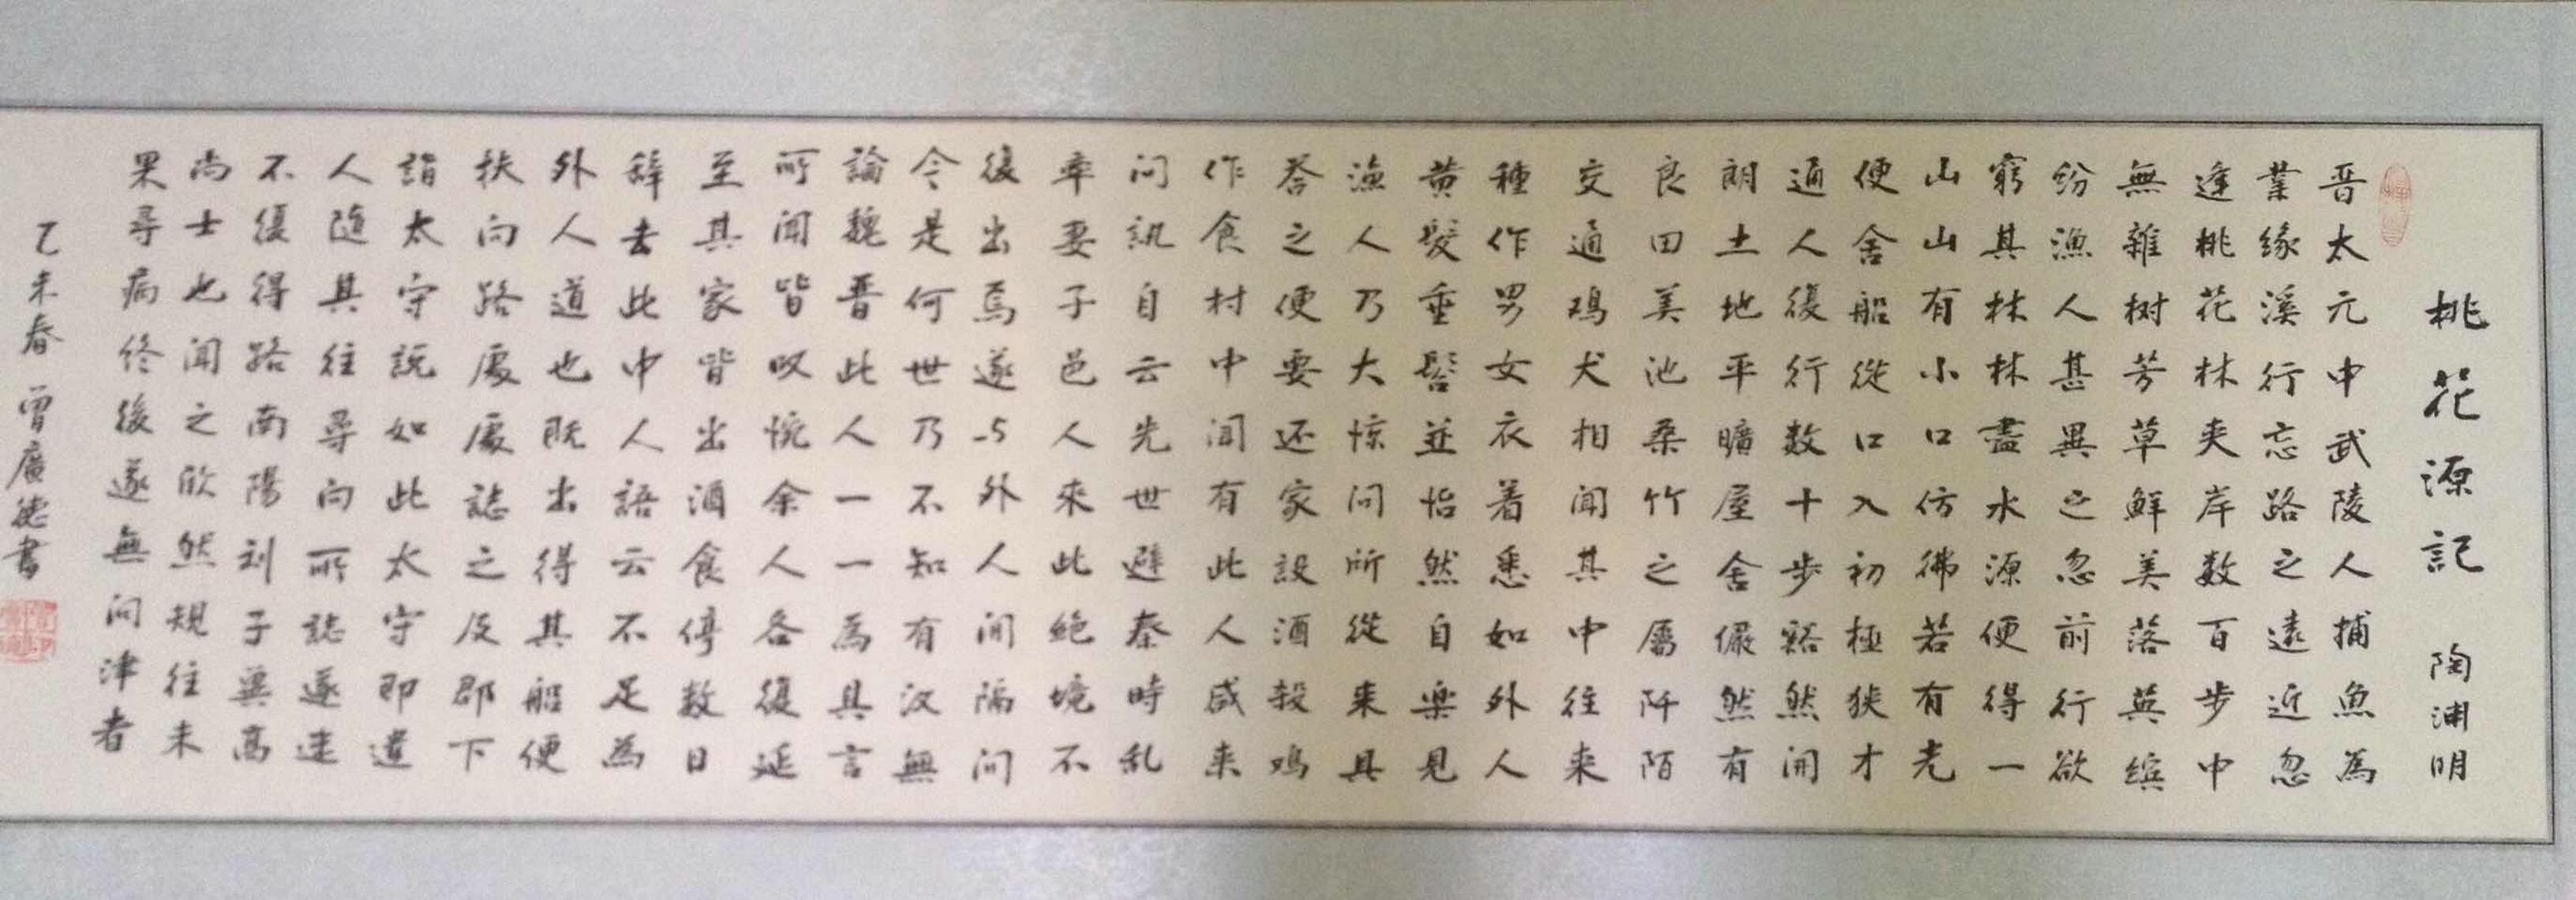 桃花源記 陶渊明
晋太元中武陵人捕魚為
業缘溪行忘路之遠近忽
逢桃花林夹岸数百步中
無雜树芳草鮮美落英缤
纷漁人甚異之忽前行欲
窮其林林盡水源便得一
山山有小口仿彿若有光
便舍船從口入初極狭才
通人復行数十步豁然開
朗土地平曠屋舍儼然有
良田美池桑竹之属阡陌
交通鸡犬相闻其中往来
種作男女衣着悉如外人
黄髮垂髫並怡然自樂见
漁人乃大惊问所從来具
荅之便要还家設酒殺鸡
作食村中闻有此人咸来
问訊自云先世避秦時乱
率妻子邑人來此絶境不
復出焉遂与外人间隔问
今是何世乃不知有汉無
論魏晋此人一一為具言
所闻皆叹惋余人各復延
至其家皆出酒食停数日
辞去此中人語云不足為
外人道也既出得其船便
扶向路處處誌之及郡下
詣太守説如此太守即遣
人随其往尋向所誌遂迷
不復得路南陽刘子冀高
尚士也闻之欣然規往未
果尋病终後遂無问津者
乙未春 曾廣德書